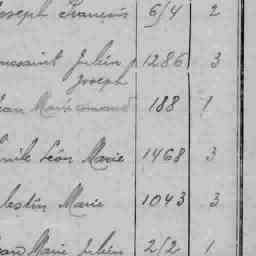 oseph François 6/4 2
oussaint Julien 1286 3
Joseph
ean Marie 188 1
mile Léon Marie 1468 3
lestin Marie 1043 3
ean Marie Julien 2/2 1